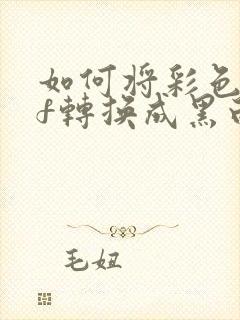 如何将彩色
f轉换成黑
毛妞